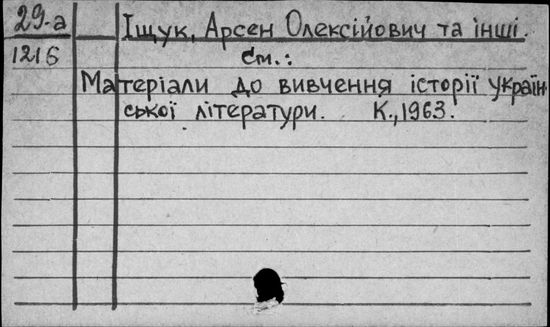 29-а Іщук, Арсен Олексійович та інші.
1216 См.:
Матеріали до вивчення історії україн
ської літератури. К., 1963.